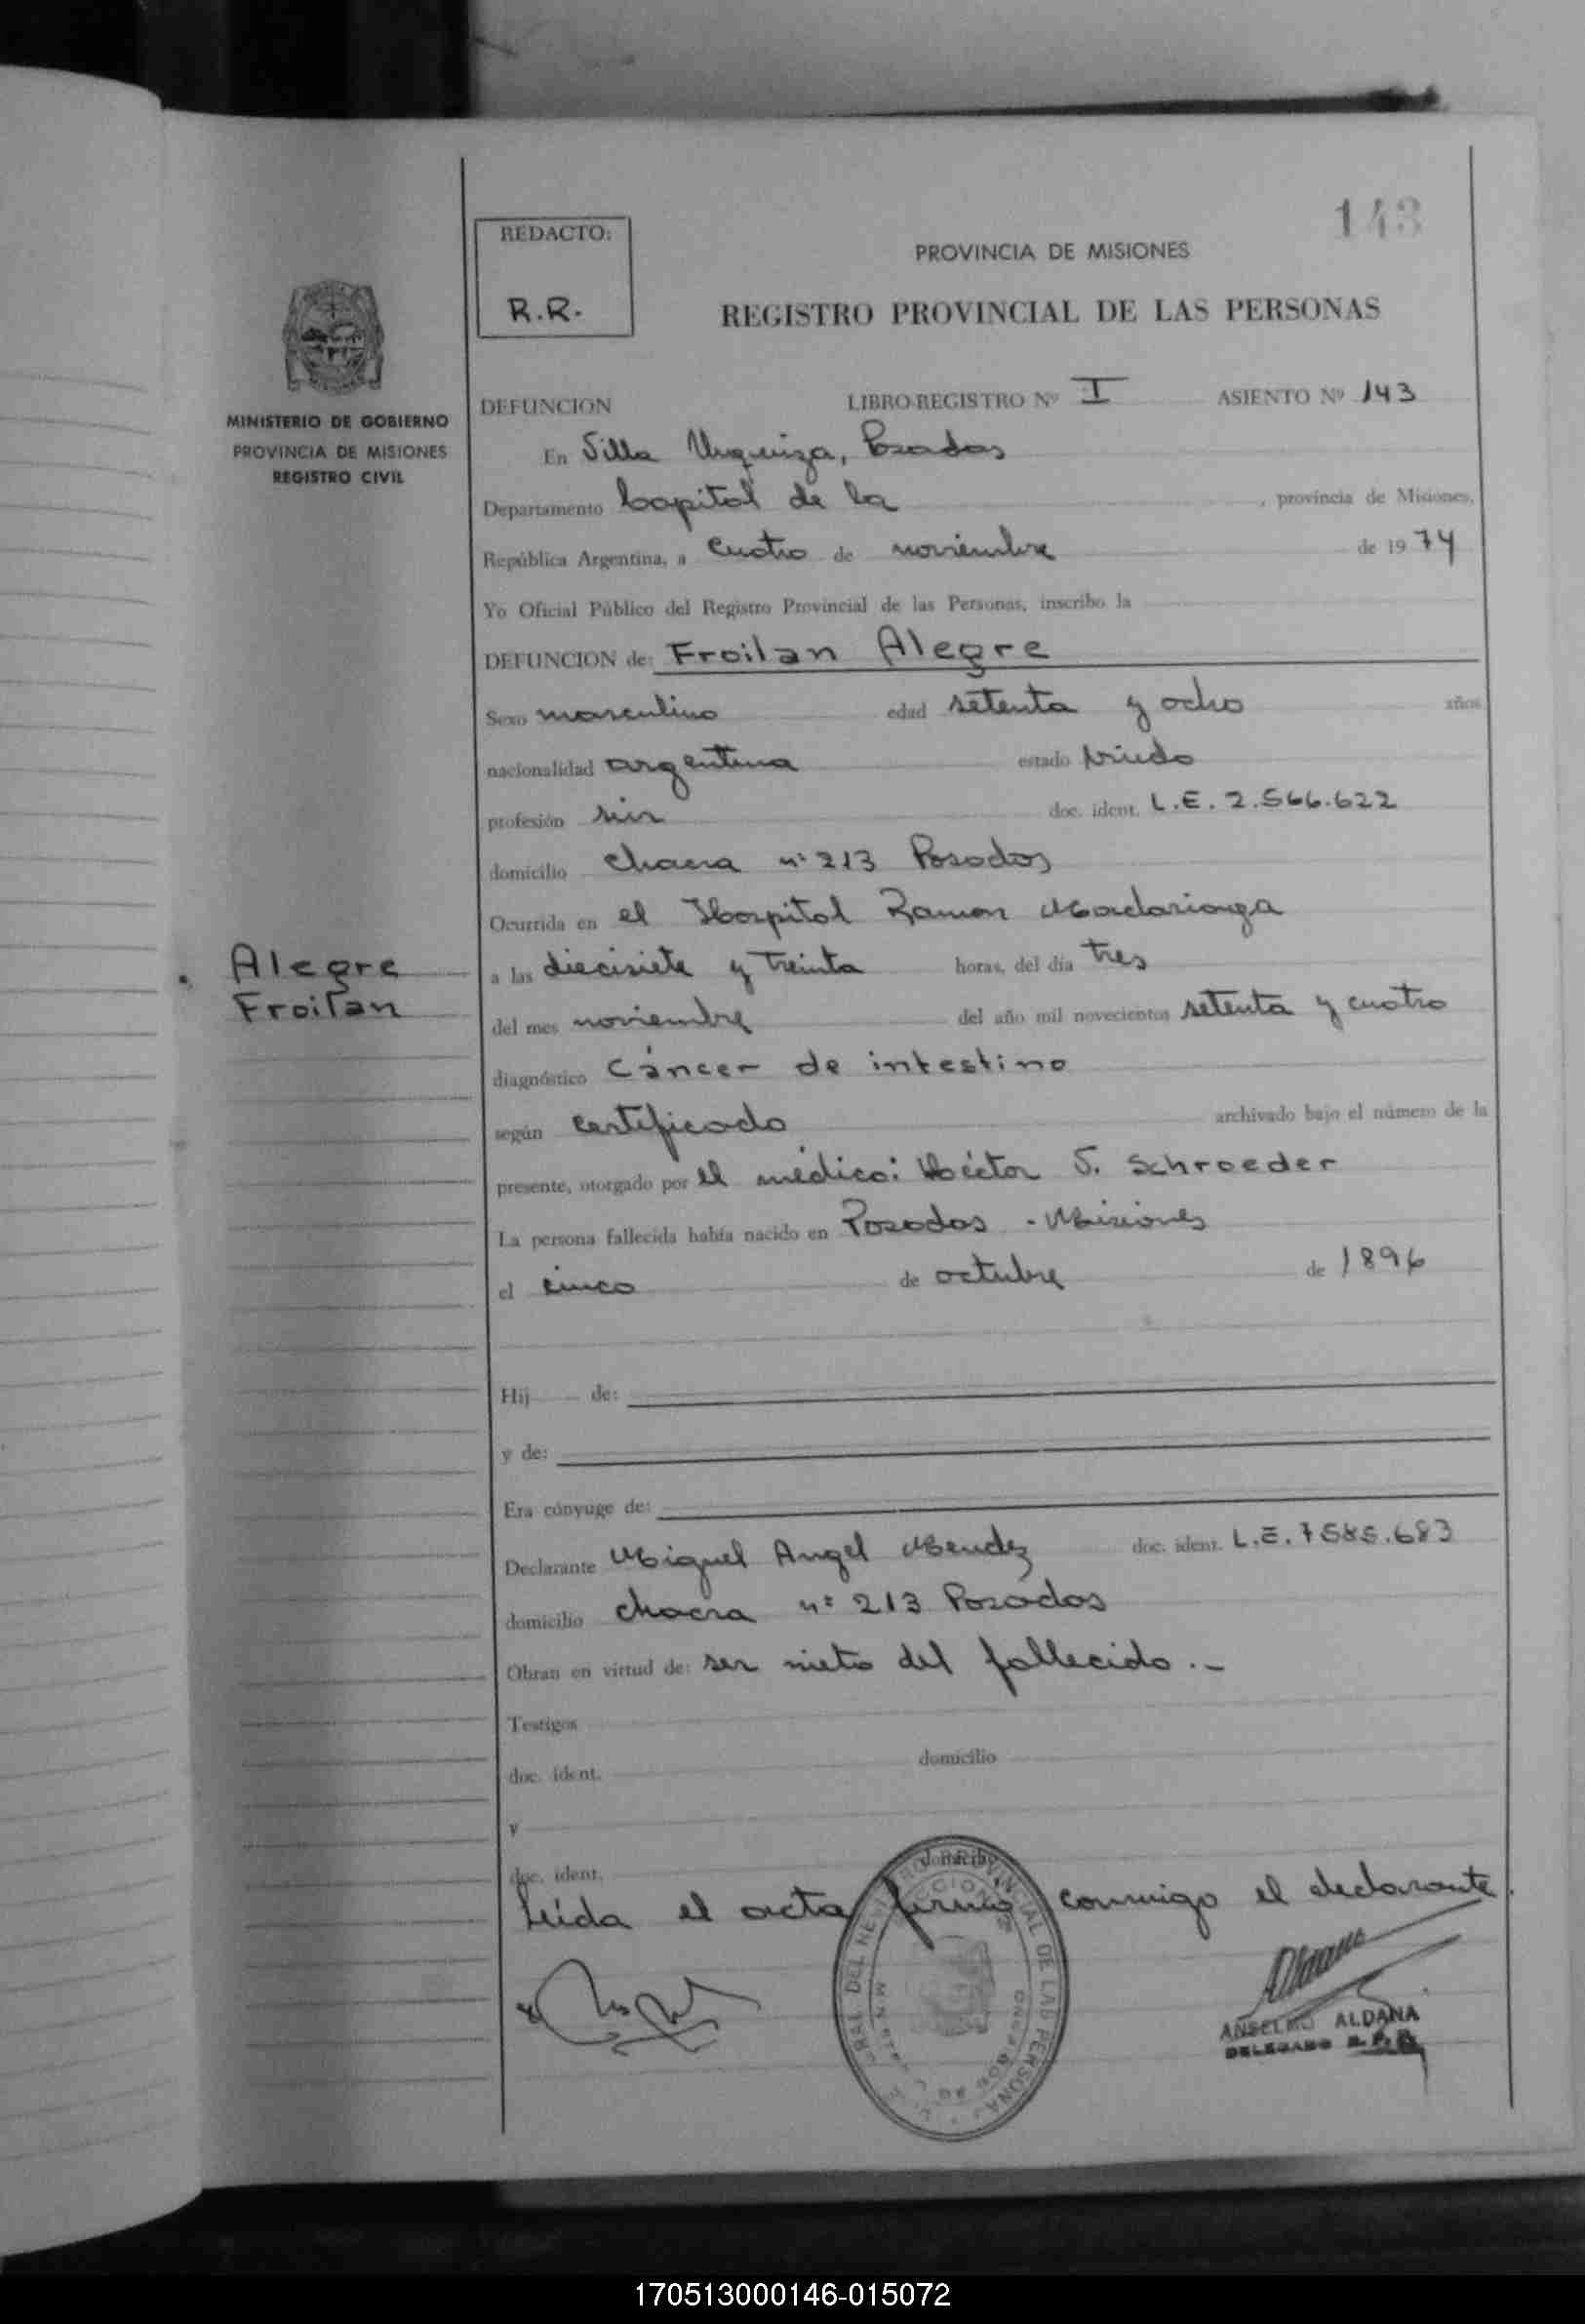 143
REDACTO:
R.R.
PROVINCIA DE MISIONES
REGISTRO PROVINCIAL DE LAS PERSONAS
MINISTERIO DE GOBIERNO
PROVINCIA DE MISIONES
REGISTRO CIVIL
DEFUNCION LIBRO-REGISTRO Nº I ASIENTO Nº 143
En Villa Urquiza, Posadas
Departamento Capital de la , provincia de Misiones,
República Argentina, a cuatro de noviembre de 1974
Yo Oficial Público del Registro Provincial de las Personas, inscribo la
DEFUNCION de: Froilan Alegre
Sexo masculino edad setenta y ocho años
nacionalidad argentina estado viudo
profesión sin doc. ident. L.E. 2.566.622
domicilio chacra nº 213 Posadas
Ocurrida en el Hospital Ramon Madariaga
Alegre
Froilan
a las diecisiete y treinta horas, del día tres
del mes noviembre del año mil novecientos setenta y cuatro
diagnóstico Cáncer de intestino
según certificado archivado bajo el número de la
presente, otorgado por el médico: Héctor J. Schroeder
La persona fallecida había nacido en Posadas - Misiones
el cinco de octubre de 1896
Hij de:
y de:
Era cónyuge de:
Declarante Miguel Angel Mendez doc. ident. L.E. 7585.683
domicilio chacra nº 213 Posadas
Obran en virtud de: ser nieto del fallecido.-
Testigos
doc. ident. domicilio
y
doc. ident. domicilio
Leída el acta firma conmigo el declarante.
ANSELMO ALDANA
DELEGADO
170513000146-015072